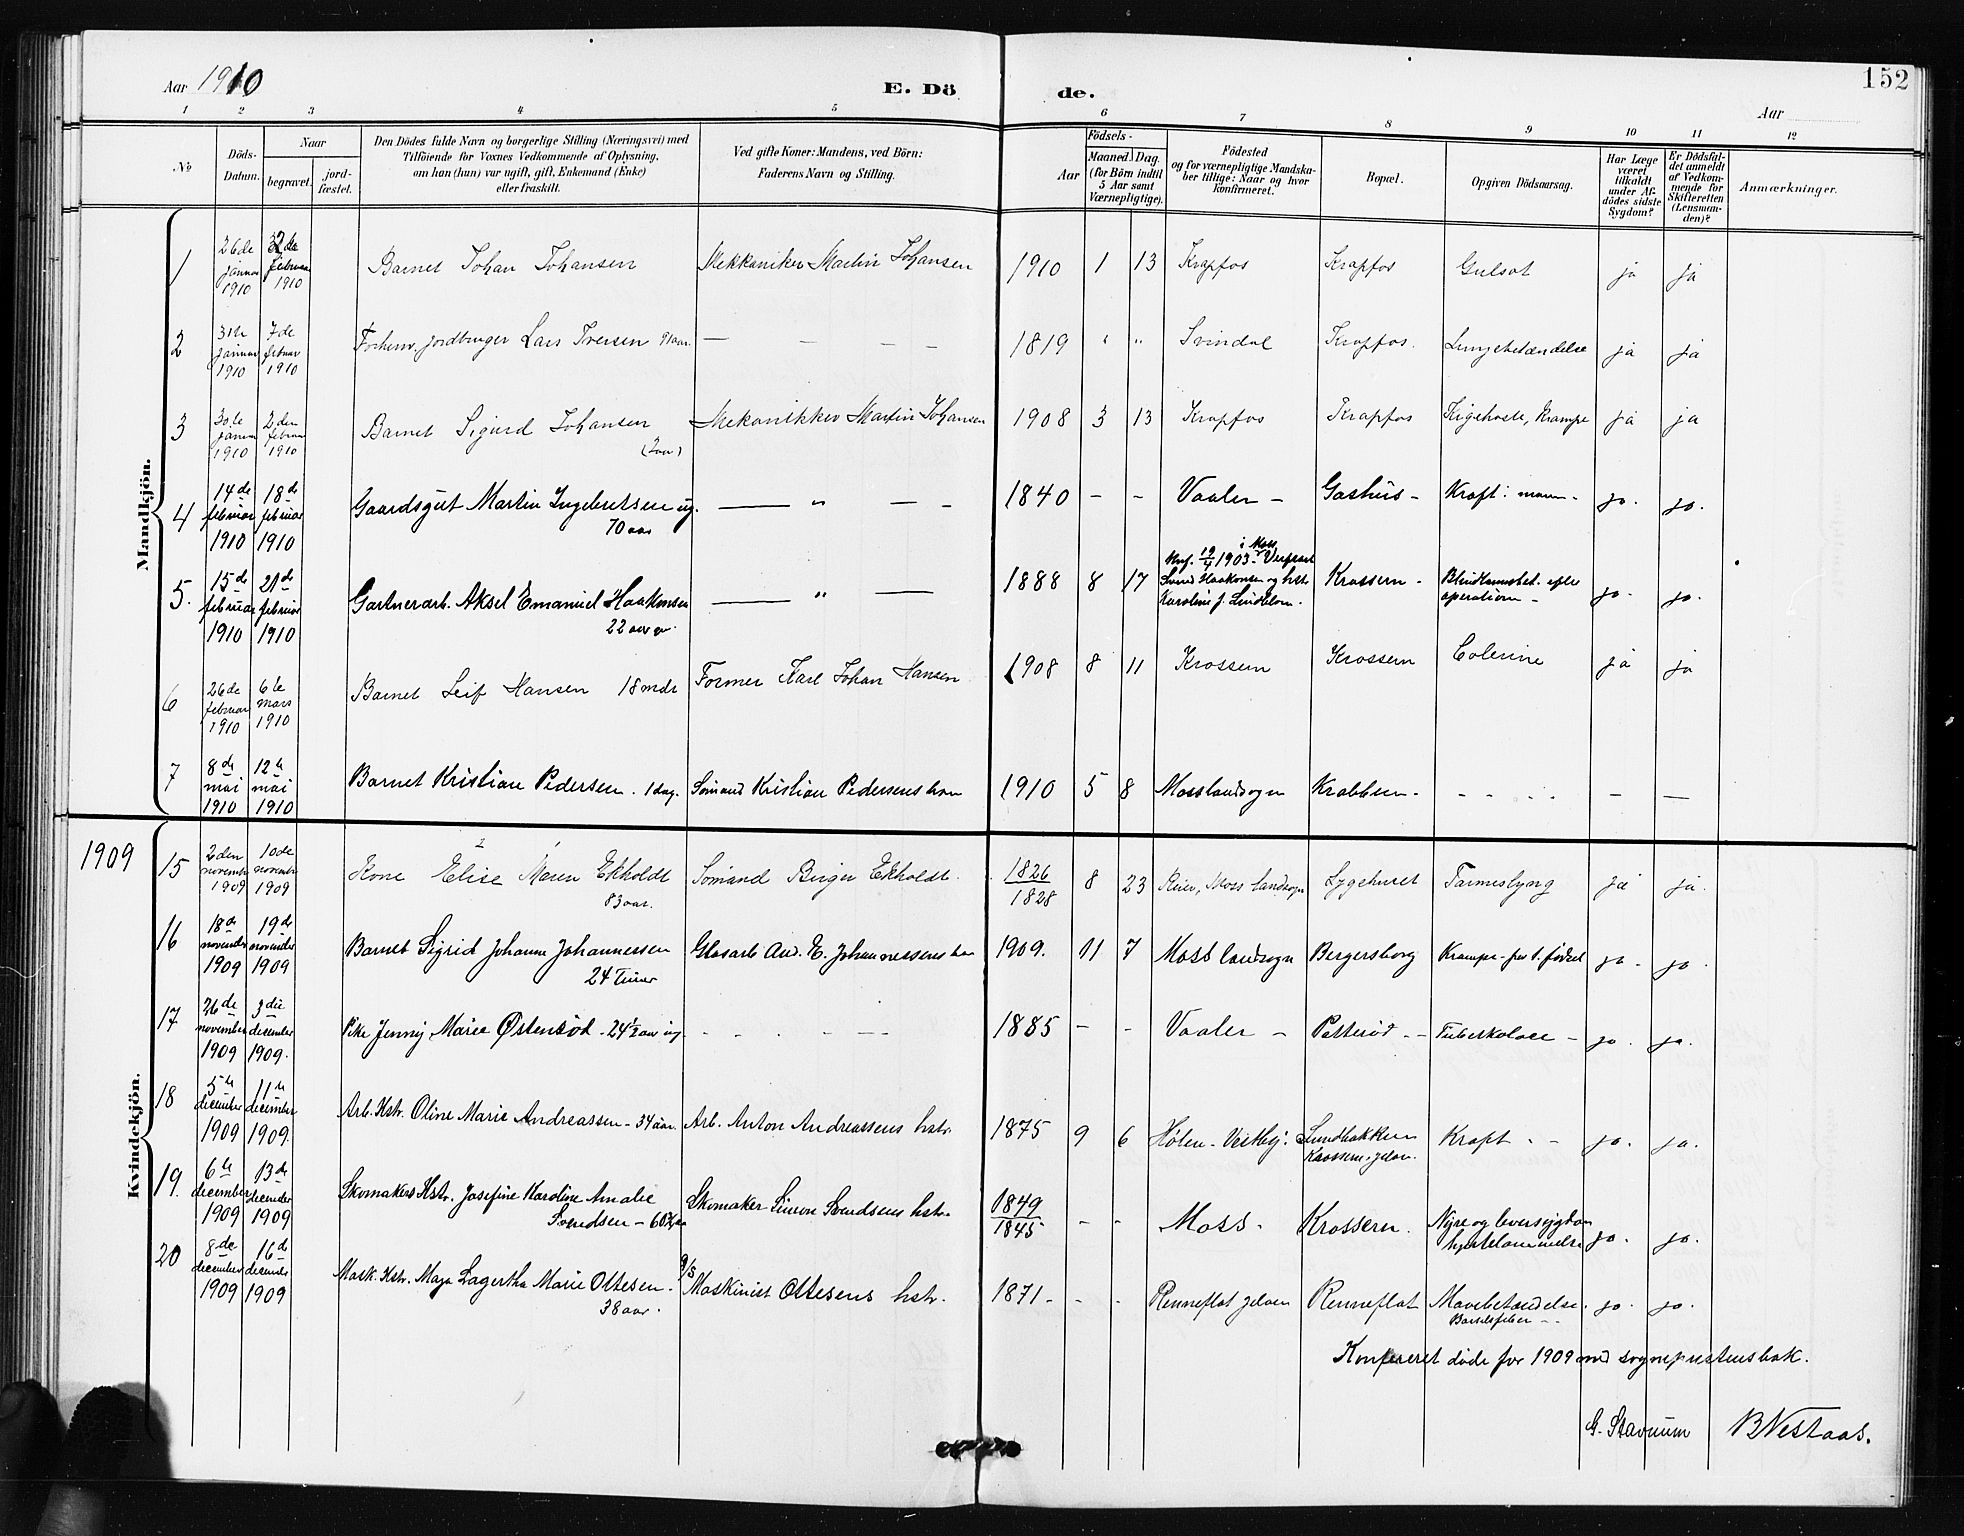 Aar 1910 E. Dö de. Aar 152
1 2 3 4 5 6 7 8 9 10 11 12
No Döds-Datum. Naar begravet. jord-fæstet. Den Dödes fulde Navn og borgerlige Stilling (Næringsvei) med Tilföiende for Voxnes Vedkommende af Oplysning, om han (hun) var ugift, gift, Enkemand (Enke) eller fraskilt. Ved gifte Koner: Mandens, ved Börn: Faderens Navn og Stilling. Födsels- Aar Maaned. Dag. (for Börn indtil 5 Aar samt Værnepligtige). Födested og for værnepligtige Mandskaber tillige: Naar og hvor konfirmeret. Bopæl. Opgiven Dödsaarsag. Har Læge været tilkaldt under Afdödes sidste Sygdom? Er Dödsfaldet anmeldt af Vedkommende for Skifteretten (Lensmanden)? Anmærkninger.
Mandkjön.
1 26de januar 1910 februar 1910 Barnet Johan Johansen Mekkaniker Martin Johansen 1910 1 13 Krapfos Krapfos Gulsot ja ja
2 31te januar 1910 7de februar 1910 Forhenv. jordbruger Lars Iversen 91 aar. — — — — 1819 " " Svindal Krapfos. Lungebetændelse ja ja
3 30te januar 1910 2den februar 1910 Barnet Sigurd Johansen (2aar) Mekanikker Martin Johansen 1908 3 13 Krapfos Krapfos Kighoste, Krampe ja ja
4 14de februar 1910 18de februar 1910 Gaardsgut Martin Ingebretsen ug. 70 aar — " — - 1840 - - Vaaler - Gashus - Kræft i maven - ja. ja.
5. 15de februar 1910 21de februar 1910 Gartnerarb. Aksel Emanuel Haakonsen 22 aar — " — - 1888 8 17 Knf. 19/4 1903 i Moss Haakonsen og hstr. Karoline f. Lindblom. Krossern - Blindtarmsbet. efter operation - ja. ja.
6 26de februar 1910 6te mars 1910 Barnet Leif Hansen 18 mdr Former Karl Johan Hansen 1908 8 11 Krossern Krossern Colerine ja ja
7 8de mai 1910 12te mai 1910 Barnet Kristian Pedersen. 1 dag. Sømand Kristian Pedersens barn 1910 5 8 Moss landsogn Krabbern - - - - - - —
Kvindekjön.
1909 15 2den novembr 1909 10de novembr 1909 Kone Elise Maren Ekholdt 83 aar. Sømand Birger Ekholdt. 1826/1828 8 23 Reier, Moss landsogn Lygehuset Tarmeslyng ja ja.
16 18de november 1909 19de november 1909 Barnet Sigrid Johanne Johannessen 24 Timer Glasarb And. E. Johannessens barn 1909. 11 7 Moss landsogn Bergersborg Krampe - født ja - ja.
17 26de november 1909 3die december 1909. Pike Jenny Marie Østenrød - 24 1/2 aar ug - - - — 1885 - - Vaaler - Patterød - - Tuberkolose - ja. ja.
18 5te december 1909 11te december 1909. Arb. Hstr. Oline Marie Andreassen - 34 aar. Arb. Anton Andreassens hstr. 1875 9 6 Hølen - Vestby. Sundbakken Krossern, jeløen. Kræft. - ja. ja.
19. 6te december 1909 13de december 1909 Skomakers Hstr. Josefine Karoline Amalie Svendsen - 60 Skomaker Simon Svendsens hstr. 1849/1845 - - Moss. Krossern. Nyre og leversygdom hjertelammelse ja. ja.
20 8de december 1909 16de december 1909 Mask. Hstr. Maja Lagertha Marie Ottesen - 38 aar. Maskinist Ottesens hstr. 1871 - - - Renneflot jeløen Renneflot Mavebetændelse. Barselfeber - - ja. ja.
Konfereret døde for 1909 med sogneprestens bok.
G. Stavnum B Nestaas.